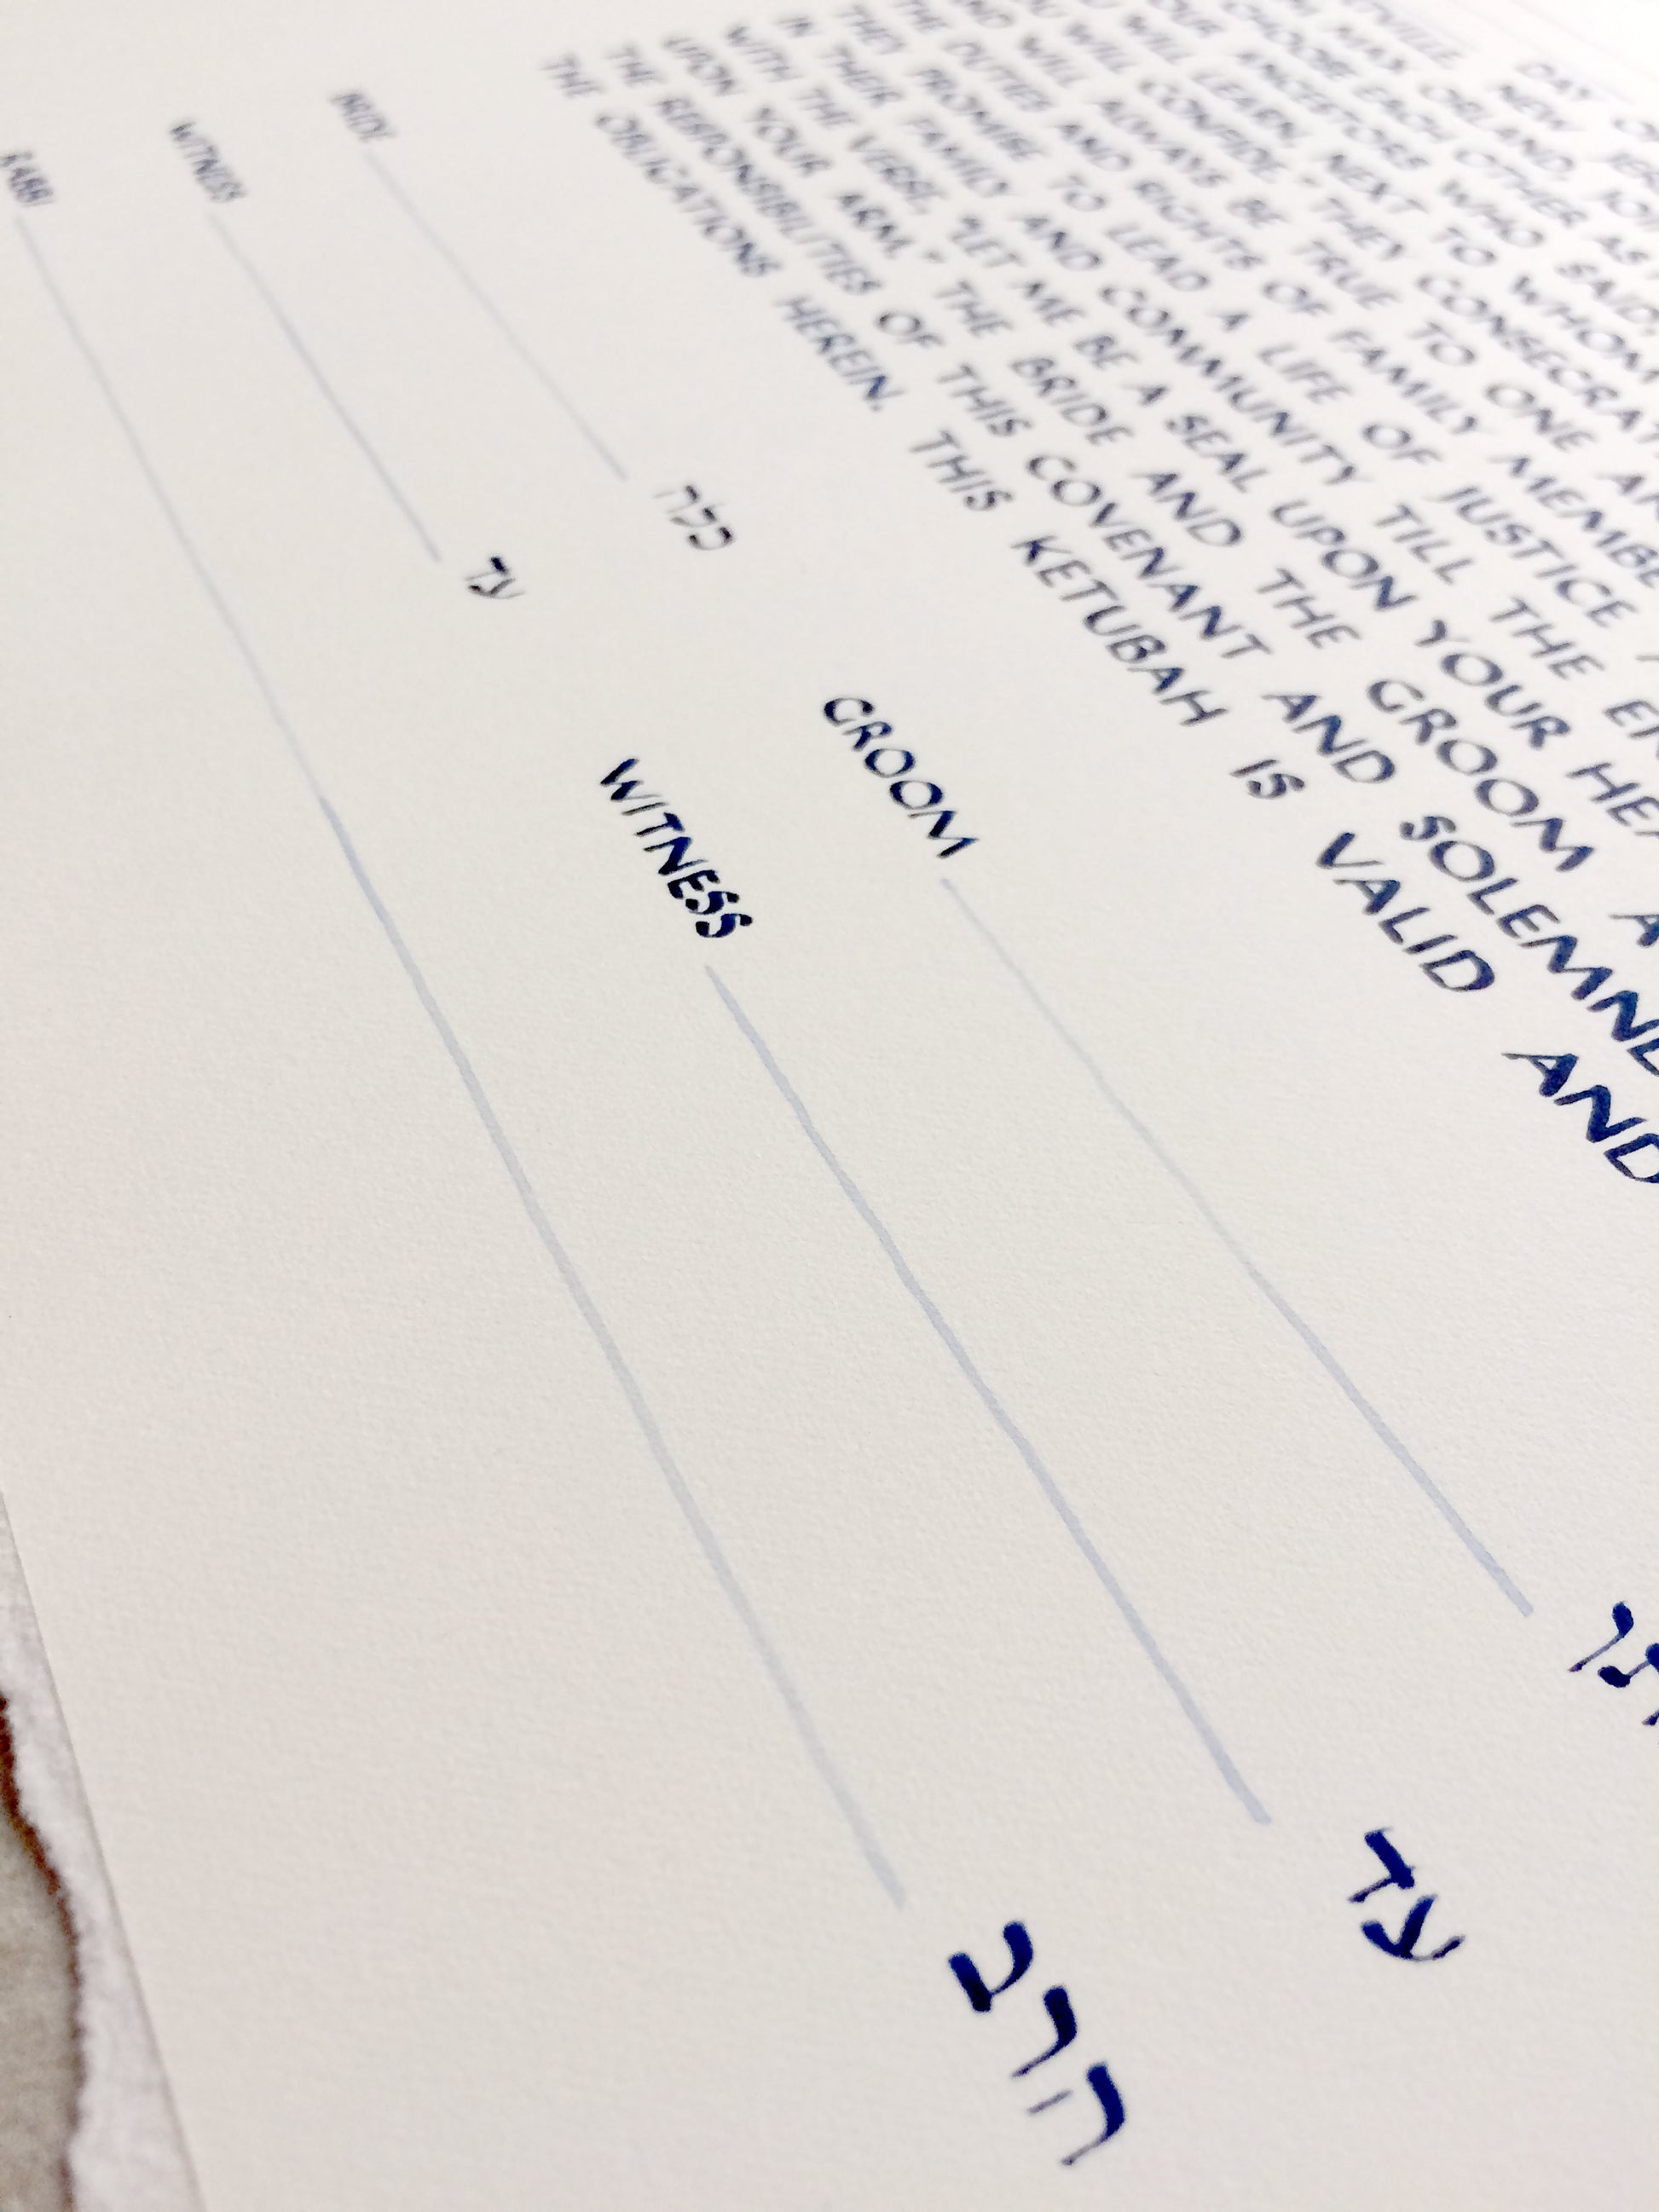 DAY OF
NEW JER
ORLAND, JOIN
CHOOSE EACH OTHER AS
OUR ANCESTORS WHO SAID,
WILL LEARN, NEXT TO WHOM
YOU WILL CONFIDE." THEY CONSECRAT
AND WILL ALWAYS BE TRUE TO ONE AN
THE DUTIES AND RIGHTS OF FAMILY MEMBE
THEY PROMISE TO LEAD A LIFE OF JUSTICE
IN THEIR FAMILY AND COMMUNITY TILL THE EN
WITH THE VERSE, "LET ME BE A SEAL UPON YOUR HEA
UPON YOUR ARM," THE BRIDE AND THE GROOM A
THE RESPONSIBILITIES OF THIS COVENANT AND SOLEMNL
THE OBLIGATIONS HEREIN. THIS KETUBAH IS VALID AND
BRIDE כלה GROOM תן
WITNESS עד WITNESS עד
RABBI הרב